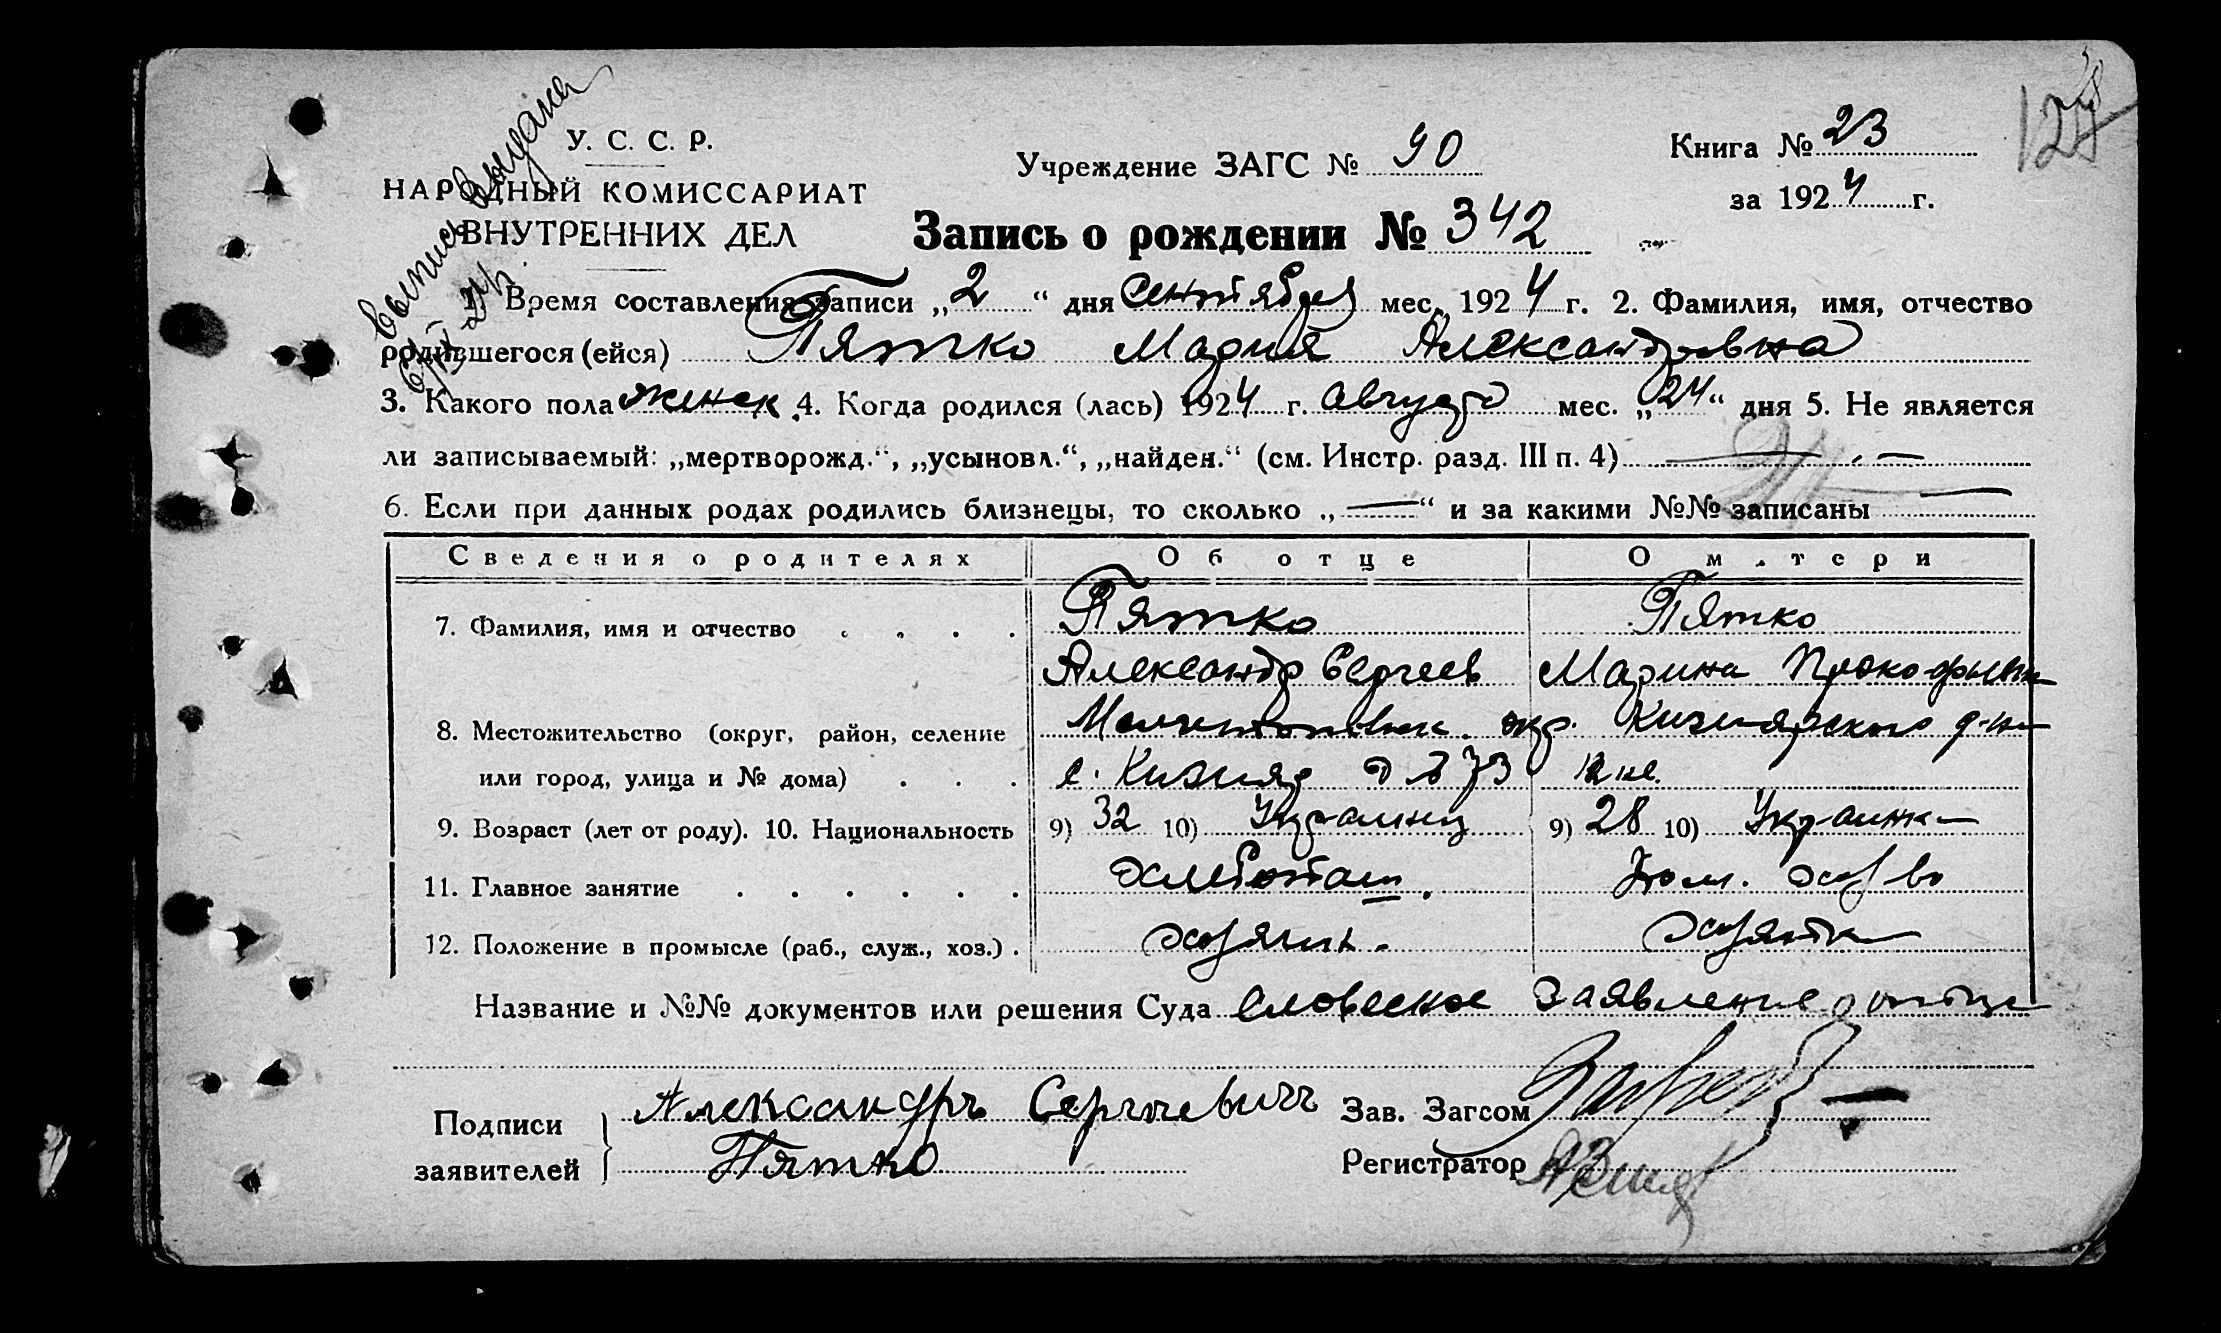 выпись выдана
У. С. С. Р.
НАРОДНЫЙ КОМИССАРИАТ
ВНУТРЕННИХ ДЕЛ
Учреждение ЗАГС № 90
Книга № 23
за 1924 г.
Запись о рождении № 342
1. Время составления записи „2“ дня сентября мес. 1924 г. 2. Фамилия, имя, отчество
родившегося (ейся) Пятко Мария Александровна
3. Какого пола женск 4. Когда родился (лась) 1924 г. август мес. „24“ дня 5. Не является
ли записываемый: „мертворожд.“, „усыновл.“, „найден.“ (см. Инстр. разд. III п. 4) —
6. Если при данных родах родились близнецы, то сколько „—“ и за какими №№ записаны —
Сведения о родителях Об отце О м.тери
7. Фамилия, имя и отчество Пятко Пятко
Александр Сергеев Марина Прокофьев
8. Местожительство (округ, район, селение окр. Кизиярского р-на
или город, улица и № дома) с. Кизияр д № 73
9. Возраст (лет от роду). 10. Национальность 9) 32 10) Украинец 9) 28 10) Украинка
11. Главное занятие Хлебопаш. Дом. хоз-во
12. Положение в промысле (раб., служ., хоз.) хозяин. хозяйка
Название и №№ документов или решения Суда словесное заявление отца
Подписи заявителей
Александръ Сергеевичъ
Пятко
Зав. Загсом
Регистратор